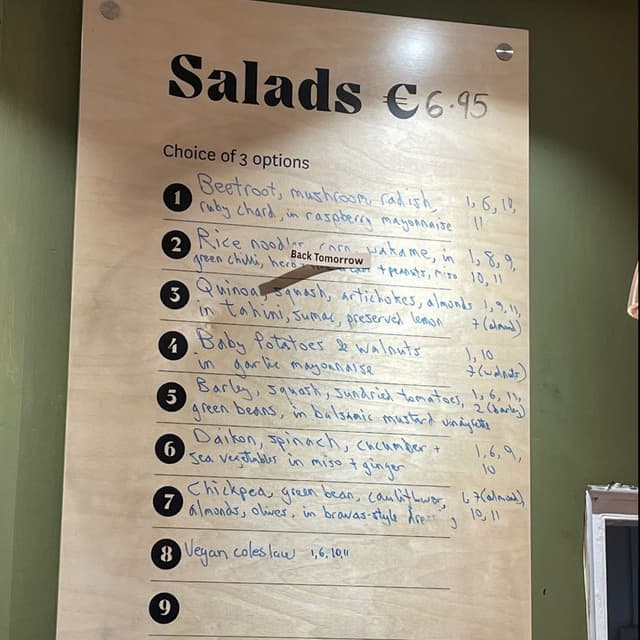 Salads €6.95
Choice of 3 options
1 Beetroot, mushroom, radish, 1, 6, 10,
ruby chard, in raspberry mayonnaise 11
2 Rice noodles, corn, wakame, in 1, 8, 9,
Back Tomorrow
green chilli, + peanuts, miso 10, 11
3 Quinoa, squash, artichokes, almonds 1, 9, 11,
in tahini, sumac, preserved lemon 7 (almond)
4 Baby Potatoes & walnuts 1, 10
in garlic mayonnaise 7 (walnuts)
5 Barley, squash, sundried tomatoes, 1, 6, 11,
green beans, in balsamic mustard vinaigrette 2 (barley)
6 Daikon, spinach, cucumber + 1, 6, 9,
sea vegetables in miso + ginger 10
7 Chickpea, green bean, cauliflower, 7 (almond),
almonds, olives, in bravas-style 10, 11
8 Vegan coleslaw 1, 6, 10, 11
9